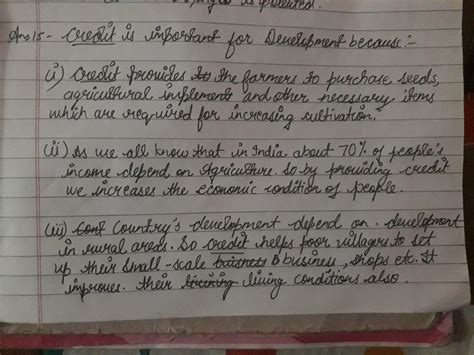 is granted.
Ans 15 - Credit is important for Development because:-
(i) Credit provides to the farmers to purchase seeds,
agricultural implement and other necessary items
which are required for increasing cultivation.
(ii) As we all know that in India about 70% of people's
income depend on Agriculture. so by providing credit
we increases the economic condition of people.
(iii) Conf Country's development depend on . development
in rural areas. So credit helps poor villagers to set
up their small-scale buisness business, shops etc. It
improves. their living conditions also.